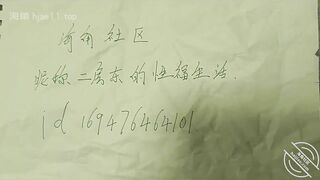 海角 hjae11.top
海角社区
昵称 二房东的性福生活.
id 169476464101